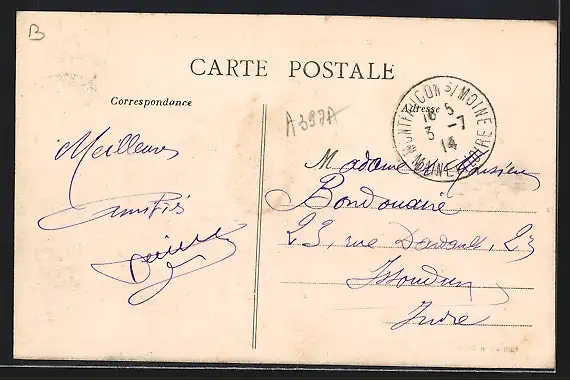 B
CARTE POSTALE
Correspondance
Adresse
A397A
MONTFAUCON S/ MOINE
16 5
3 -7
14
MAINE ET LOIRE
Meilleures
amitiés
Madame et Monsieur
Bondouaire
23, rue Dardault, 23
Issoudun
Indre